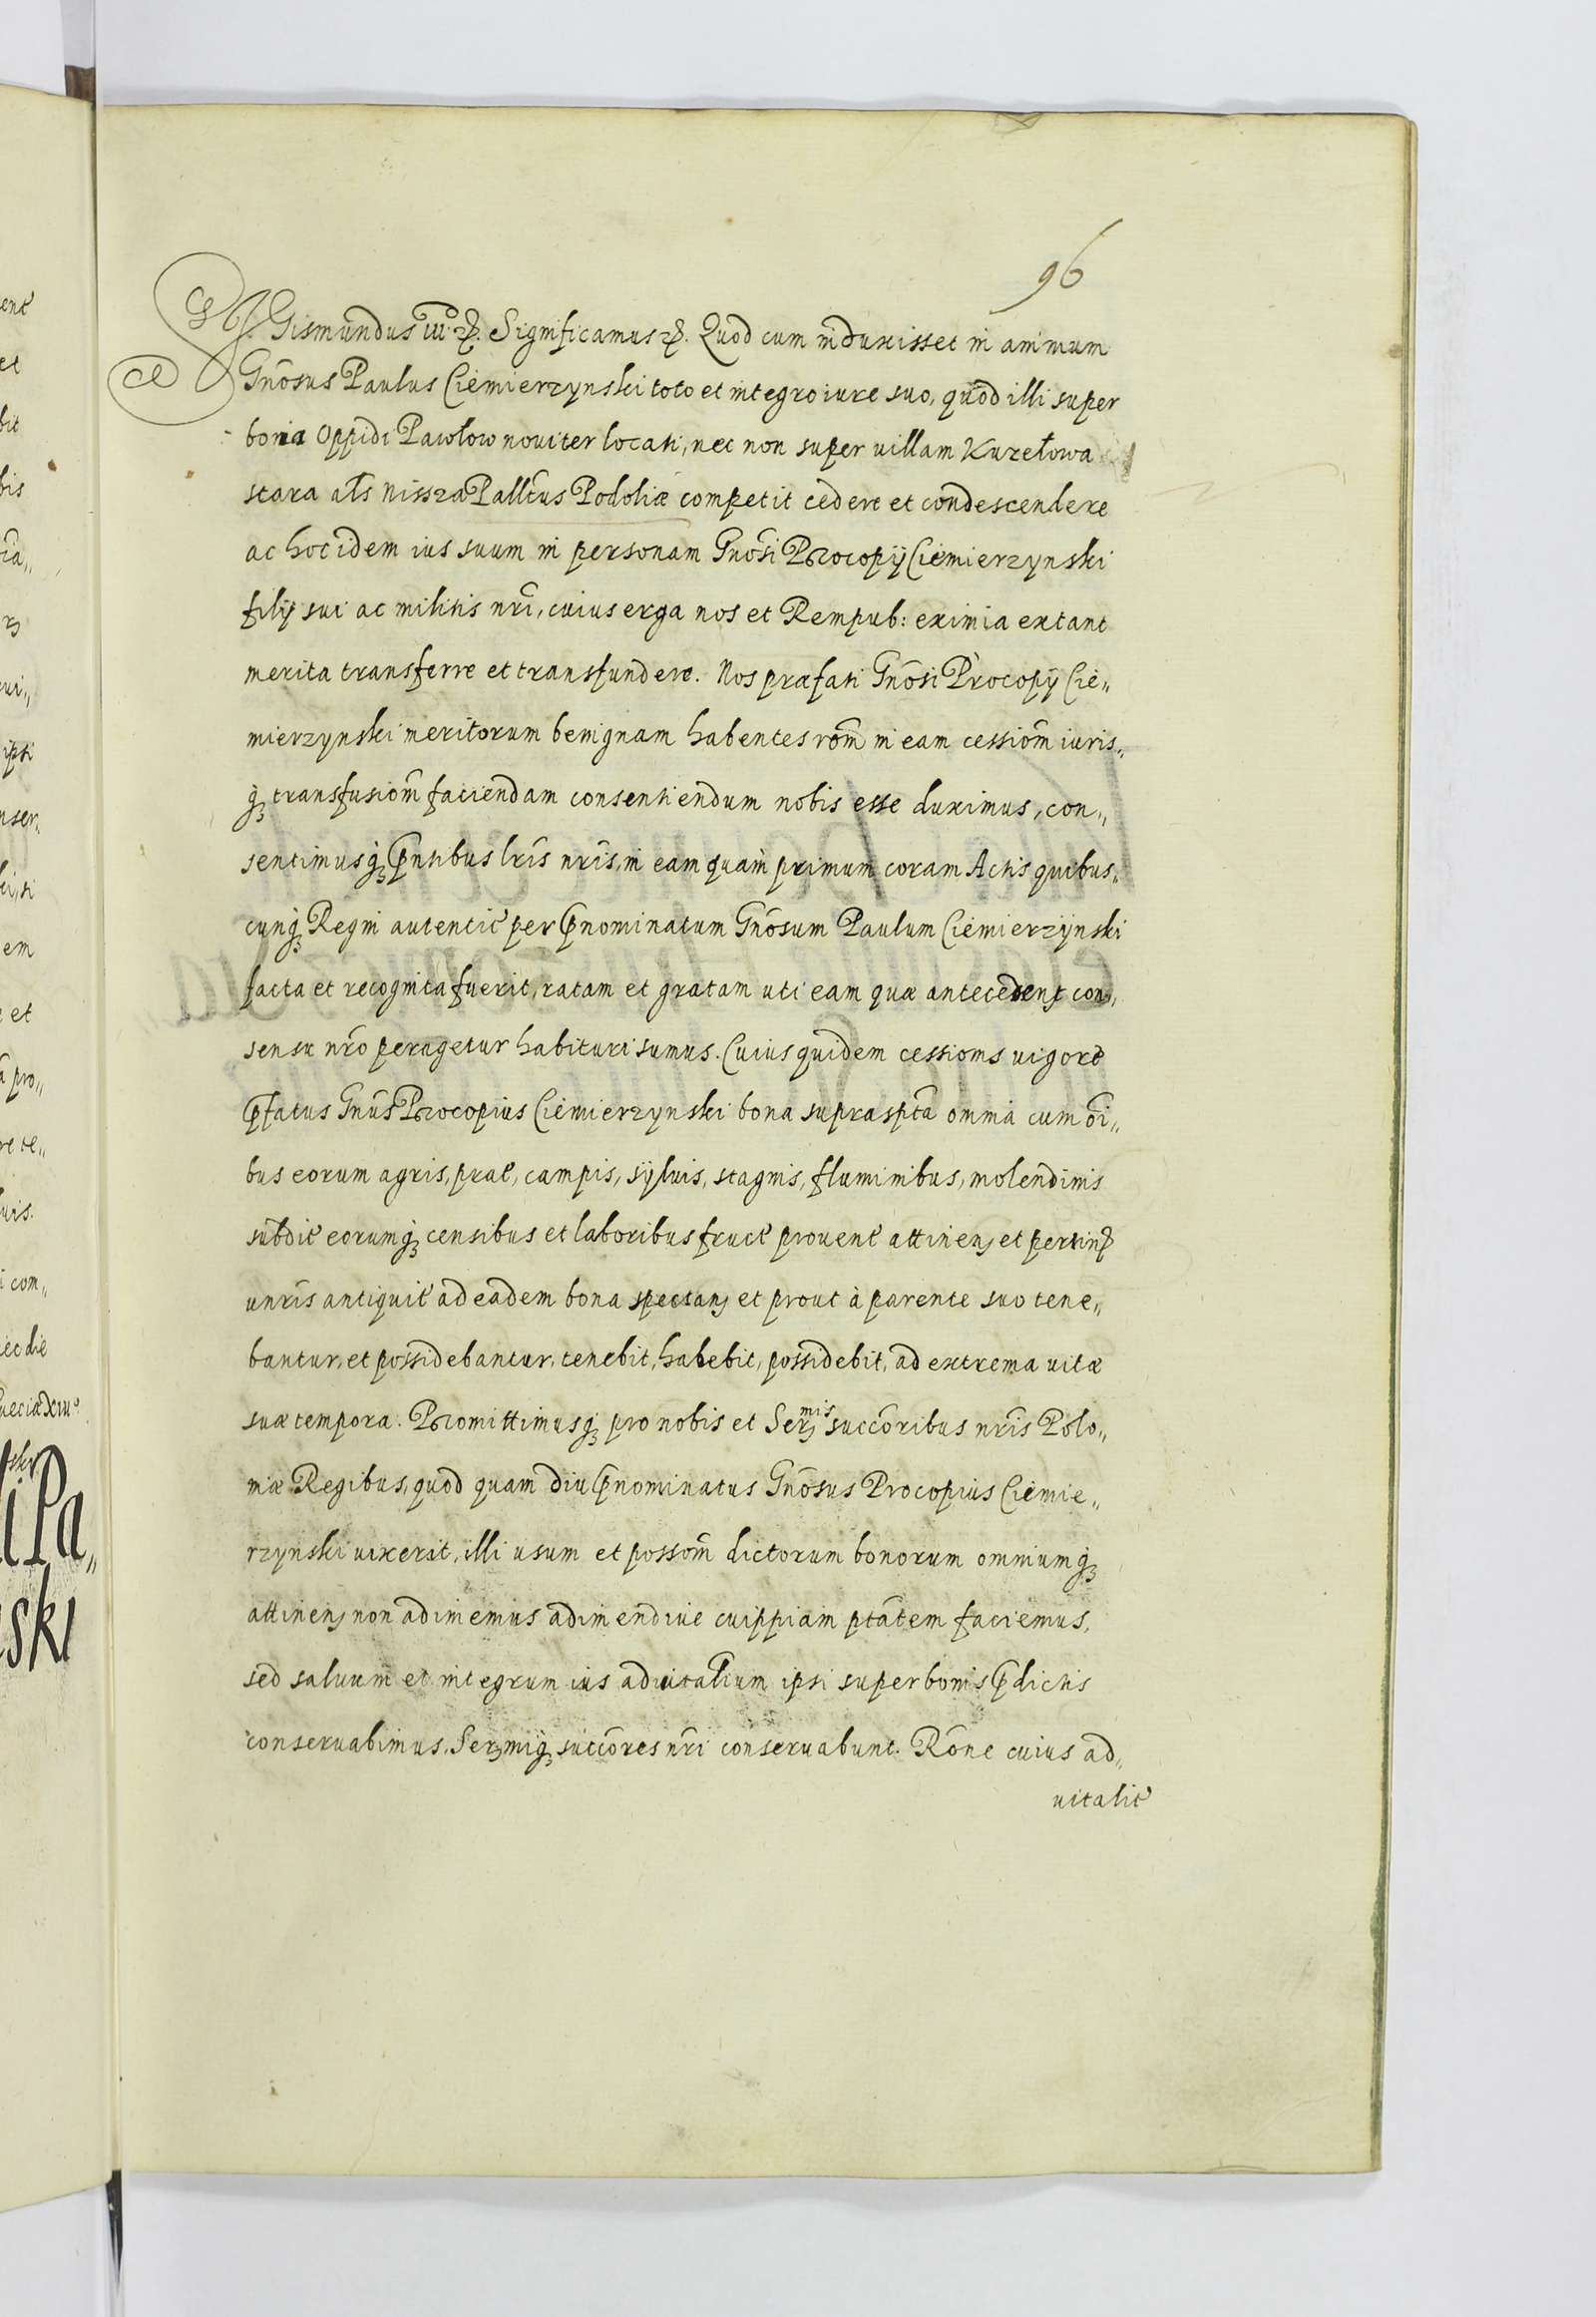 96
Sigismundus iiius etc. Significamus etc. Quod cum induxisset in animum
Gnōsus Paulus Ciemierzynski toto et integro iure suo, quod illi super
bona Oppidi Pawłow noviter locati, nec non super villam Kurełowa
stara als nissza Palltus Podoliæ competit cedere et condescendere
ac hoc idem ius suum in personam Gnōsi Procopij Ciemierzynski
filij sui ac militis nri, cuius erga nos et Rempub: eximia extant
merita transferre et transfundere. Nos præfati Gnōsi Procopij Cie„
mierzynski meritorum benignam habentes rom̄ in eam cessiom̄ iuris„
q̨ transfusiom̄ faciendam consentiendum nobis esse duximus, con„
sentimusq̨ pn̄tibus lris nris, in eam quam primum coram Actis quibus„
cunq̨ Regni autentic per pnominatum Gnōsum Paulum Ciemierzynski
facta et recognita fuerit, ratam et gratam uti eam quæ antecedente con„
sensu nro peragetur habituri sumus. Cuius quidem cessionis vigore
pfatus Gnūs Procopius Ciemierzynski bona supraspta omnia cum oī„
bus eorum agris, prat, campis, sÿluis, stagnis, fluminibus, molendinis
subdit eorumq̨ censibus et laboribus fruct prouent attinen et pertin
unris antiquit ad eadem bona spectan et prout à parente suo tene„
bantur, et possidebantur, tenebit, habebit, possidebit, ad extrema vitæ
suæ tempora. Promittimusq̨ pro nobis et Ser^mis succoribus nris Polo„
niæ Regibus, quod quam diu pnominatus Gnōsus Procopius Ciemie„
rzynski vixerit, illi usum et possom̄ dictorum bonorum omniumq̨
attinen non adimemus adimendiue cuippiam ptātem faciemus,
sed saluum et integrum ius aduitalium ipsi super bonis pdictis
conseruabimus, Sermiq̨ succores nri conseruabunt. Rōne cuius ad„
uitalit